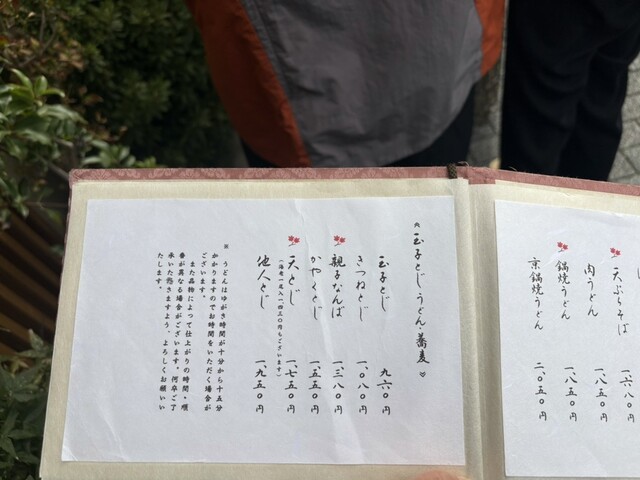 天ぷらそば 一、六八〇円
肉うどん 一、八五〇円
鍋焼うどん 一、八五〇円
京鍋焼うどん 二、〇五〇円
玉子とじ・うどん・蕎麦
玉子とじ 九六〇円
きつねとじ 一、〇八〇円
親子なんば 一、三八〇円
かやくとじ 一、五五〇円
天とじ 一、七五〇円
(海老一尾入一四三〇円もございます)
他人とじ 一、九五〇円
※ うどんはゆがき時間が十分から十五分
かかりますのでお時間をいただく場合が
ございます。
また品物によって仕上がりの時間・順
番が異なる場合がございます。何卒ご了
承いただきますよう、よろしくお願いい
たします。